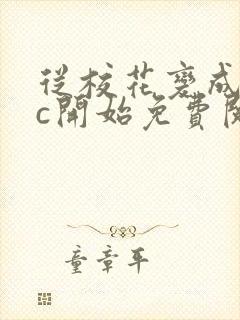 從校花變成
c開始免費閱
童章平